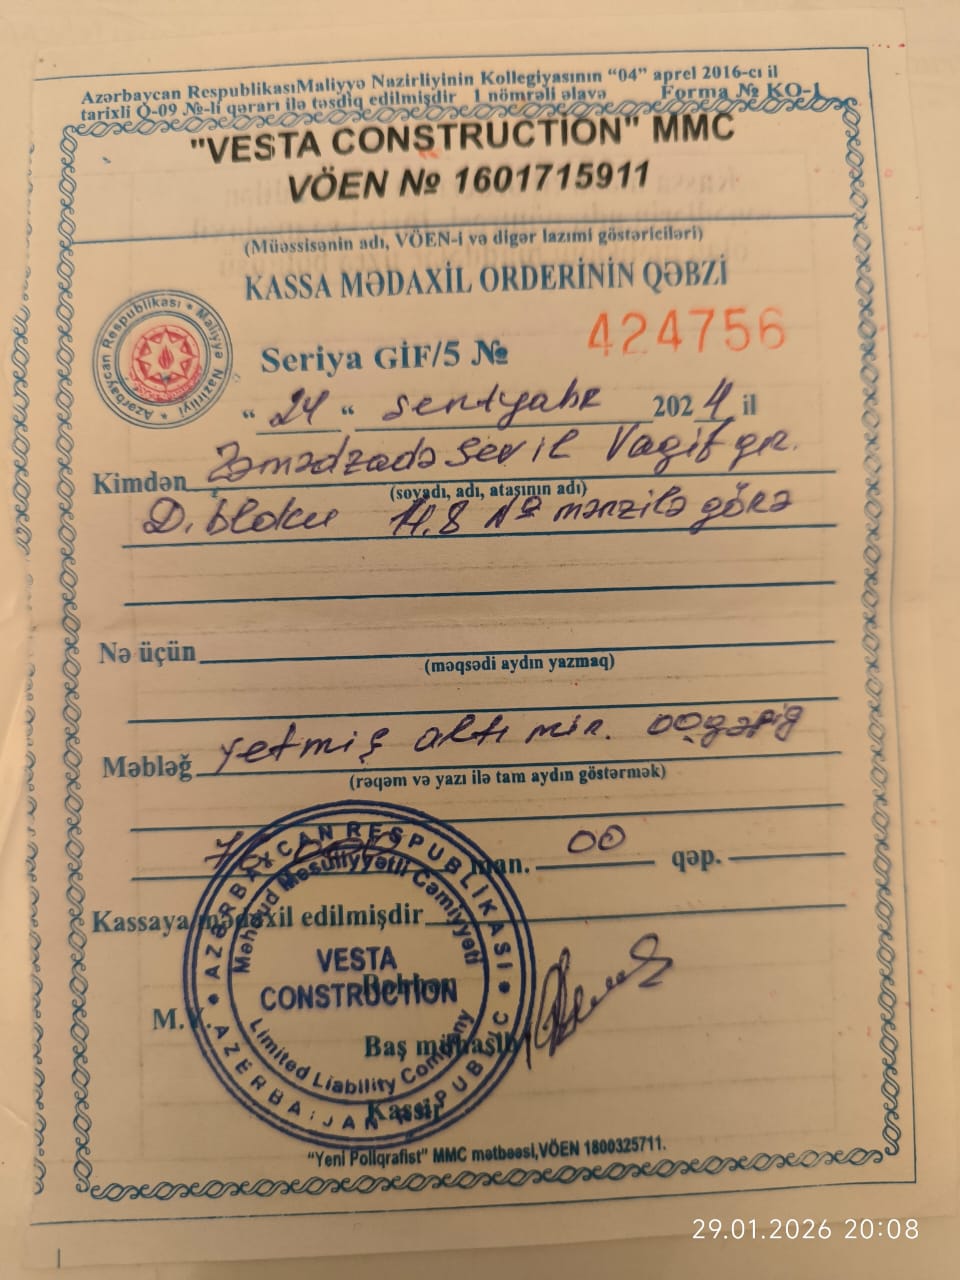 Azərbaycan RespublikasıMaliyyə Nazirliyinin Kollegiyasının “04” aprel 2016-cı il
tarixli Q-09 №-li qərarı ilə təsdiq edilmişdir 1 nömrəli əlavə Forma № KO-1
"VESTA CONSTRUCTİON" MMC
VÖEN № 1601715911
(Müəssisənin adı, VÖEN-i və digər lazımi göstəriciləri)
KASSA MƏDAXİL ORDERİNİN QƏBZİ
Azərbaycan Respublikası Maliyyə Nazirliyi
Seriya GİF/5 № 424756
“ 24 “ sentyabr 2024 il
Kimdən Səmədzadə Sevil Vaqif qız.
(soyadı, adı, atasının adı)
D. bloku 11.8 № mənzilə görə
Nə üçün
(məqsədi aydın yazmaq)
Məbləğ yetmiş altı min. 00 qəpig
(rəqəm və yazı ilə tam aydın göstərmək)
man. 00 qəp.
Kassaya mədaxil edilmişdir
AZƏRBAYCAN RESPUBLİKASI
Məhdud Məsuliyyətli Cəmiyyəti
VESTA
CONSTRUCTİON
Limited Liability Company
AZERBAİJAN REPUBLİC
Rəhbər
M.Y.
Baş mühasib
Kassir
“Yeni Poliqrafist” MMC mətbəəsi,VÖEN 1800325711.
29.01.2026 20:08